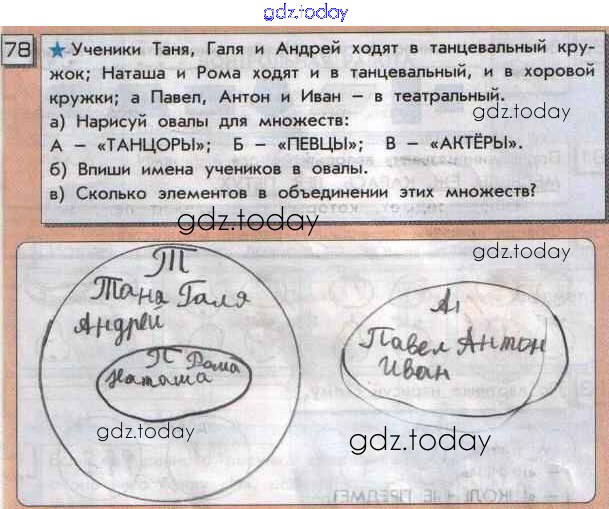 gdz.today
78
★ Ученики Таня, Галя и Андрей ходят в танцевальный кру-
жок; Наташа и Рома ходят и в танцевальный, и в хоровой
кружки; а Павел, Антон и Иван – в театральный.
gdz.today
а) Нарисуй овалы для множеств:
А – «ТАНЦОРЫ»; Б – «ПЕВЦЫ»; В – «АКТЁРЫ».
б) Впиши имена учеников в овалы.
в) Сколько элементов в объединении этих множеств?
gdz.today
gdz.today
Т
Таня Галя
Андрей
П Рома
Наташа
А
Павел Антон
Иван
gdz.today
gdz.today